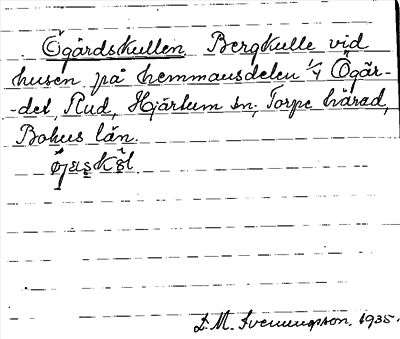 Ögårdskullen. Bergkulle vid
husen på hemmansdelen 1/4 Ögår-
-det, Rud, Hjärtum sn; Torpe härad,
Bohus län.
D. M. Svenungsson, 1935.